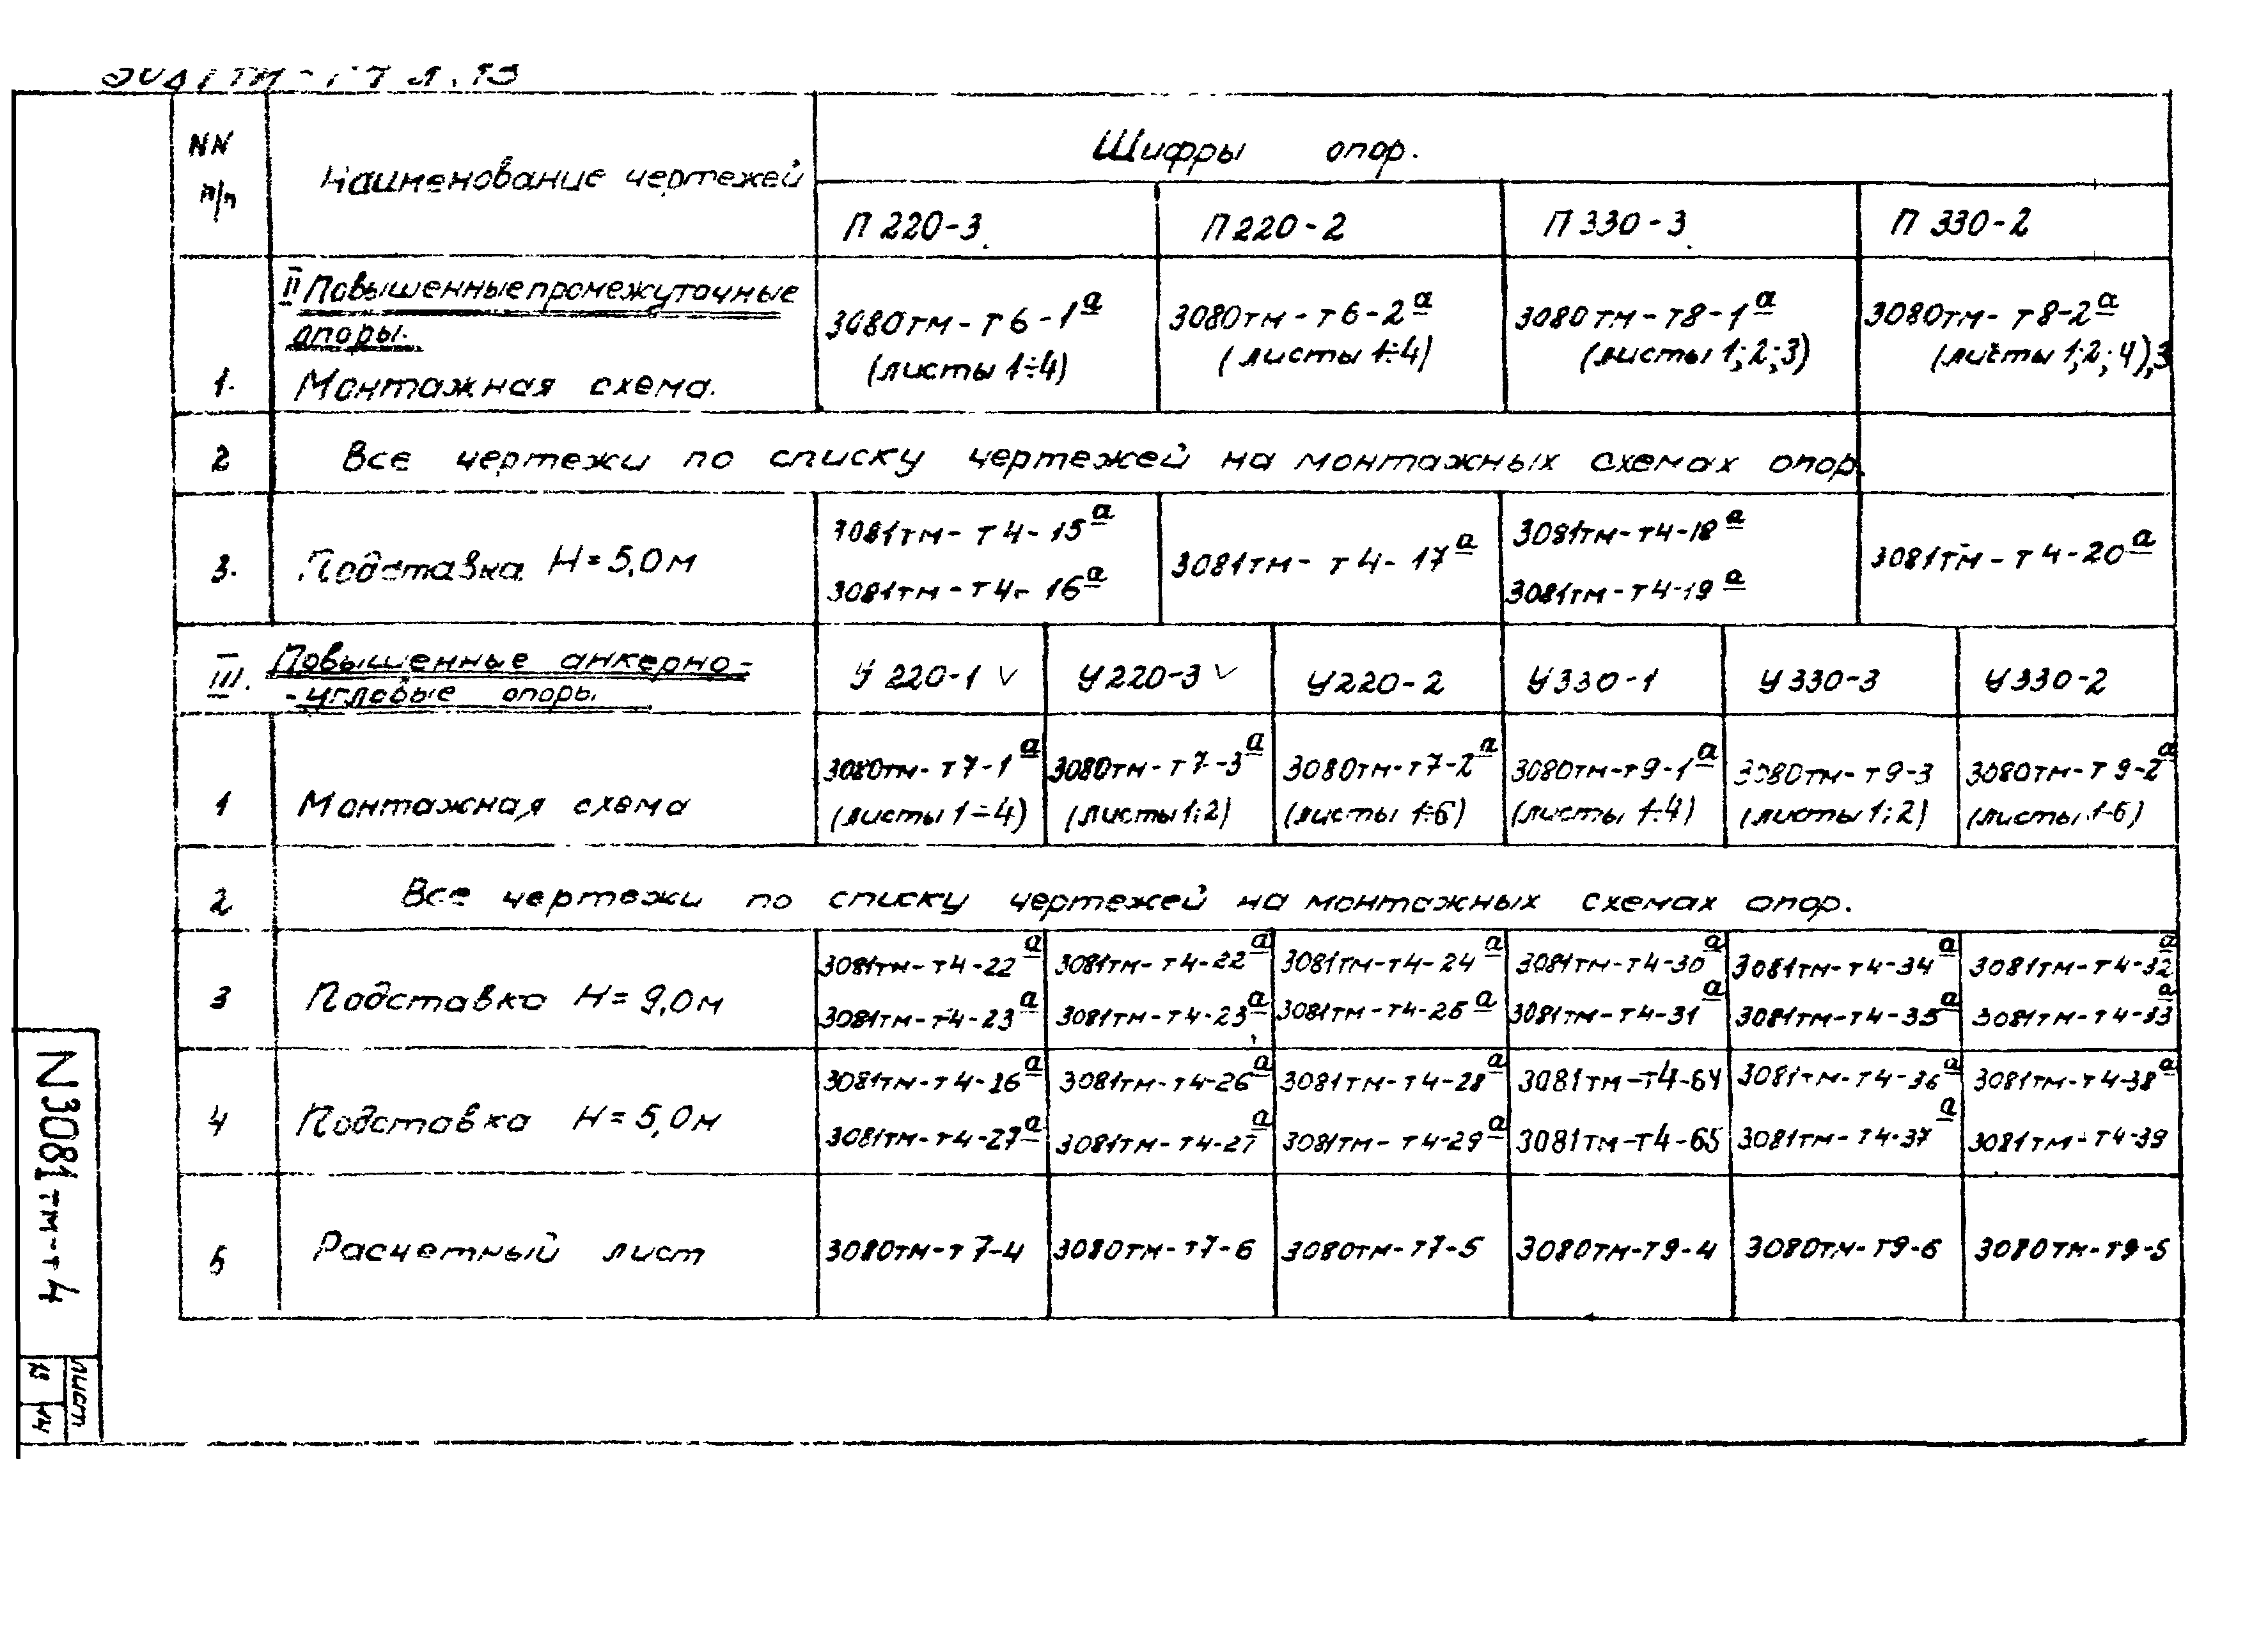 NN
п/п
Наименование чертежей
Шифры опор.
П 220-3
П 220-2
П 330-3
П 330-2
II Повышенные промежуточные
опоры.
1.
Монтажная схема.
3080тм-т6-1а
(листы 1÷4)
3080тм-т6-2а
(листы 1÷4)
3080тм-т8-1а
(листы 1;2;3)
3080тм-т8-2а
(листы 1;2;4),3
2
Все чертежи по списку чертежей на монтажных схемах опор.
3.
Подставка Н=5,0м
3081тм-т4-15а
3081тм-т4-16а
3081тм-т4-17а
3081тм-т4-18а
3081тм-т4-19а
3081тм-т4-20а
III.
Повышенные анкерно-
-угловые опоры.
У 220-1 ✓
У 220-3 ✓
У 220-2
У 330-1
У 330-3
У 330-2
1
Монтажная схема
3080тм-т7-1а
(листы 1÷4)
3080тм-т7-3а
(листы 1;2)
3080тм-т7-2а
(листы 1÷6)
3080тм-т9-1а
(листы 1÷4)
3080тм-т9-3
(листы 1;2)
3080тм-т9-2а
(листы 1-6)
2
Все чертежи по списку чертежей на монтажных схемах опор.
3
Подставка Н=9,0м
3081тм-т4-22а
3081тм-т4-23а
3081тм-т4-22а
3081тм-т4-23а
3081тм-т4-24а
3081тм-т4-25а
3081тм-т4-30а
3081тм-т4-31а
3081тм-т4-34а
3081тм-т4-35а
3081тм-т4-32а
3081тм-т4-33а
4
Подставка Н=5,0м
3081тм-т4-26а
3081тм-т4-27а
3081тм-т4-26а
3081тм-т4-27а
3081тм-т4-28а
3081тм-т4-29а
3081тм-т4-64
3081тм-т4-65
3081тм-т4-36а
3081тм-т4-37а
3081тм-т4-38а
3081тм-т4-39
5
Расчетный лист
3080тм-т7-4
3080тм-т7-6
3080тм-т7-5
3080тм-т9-4
3080тм-т9-6
3080тм-т9-5
N3081тм-т4
лист